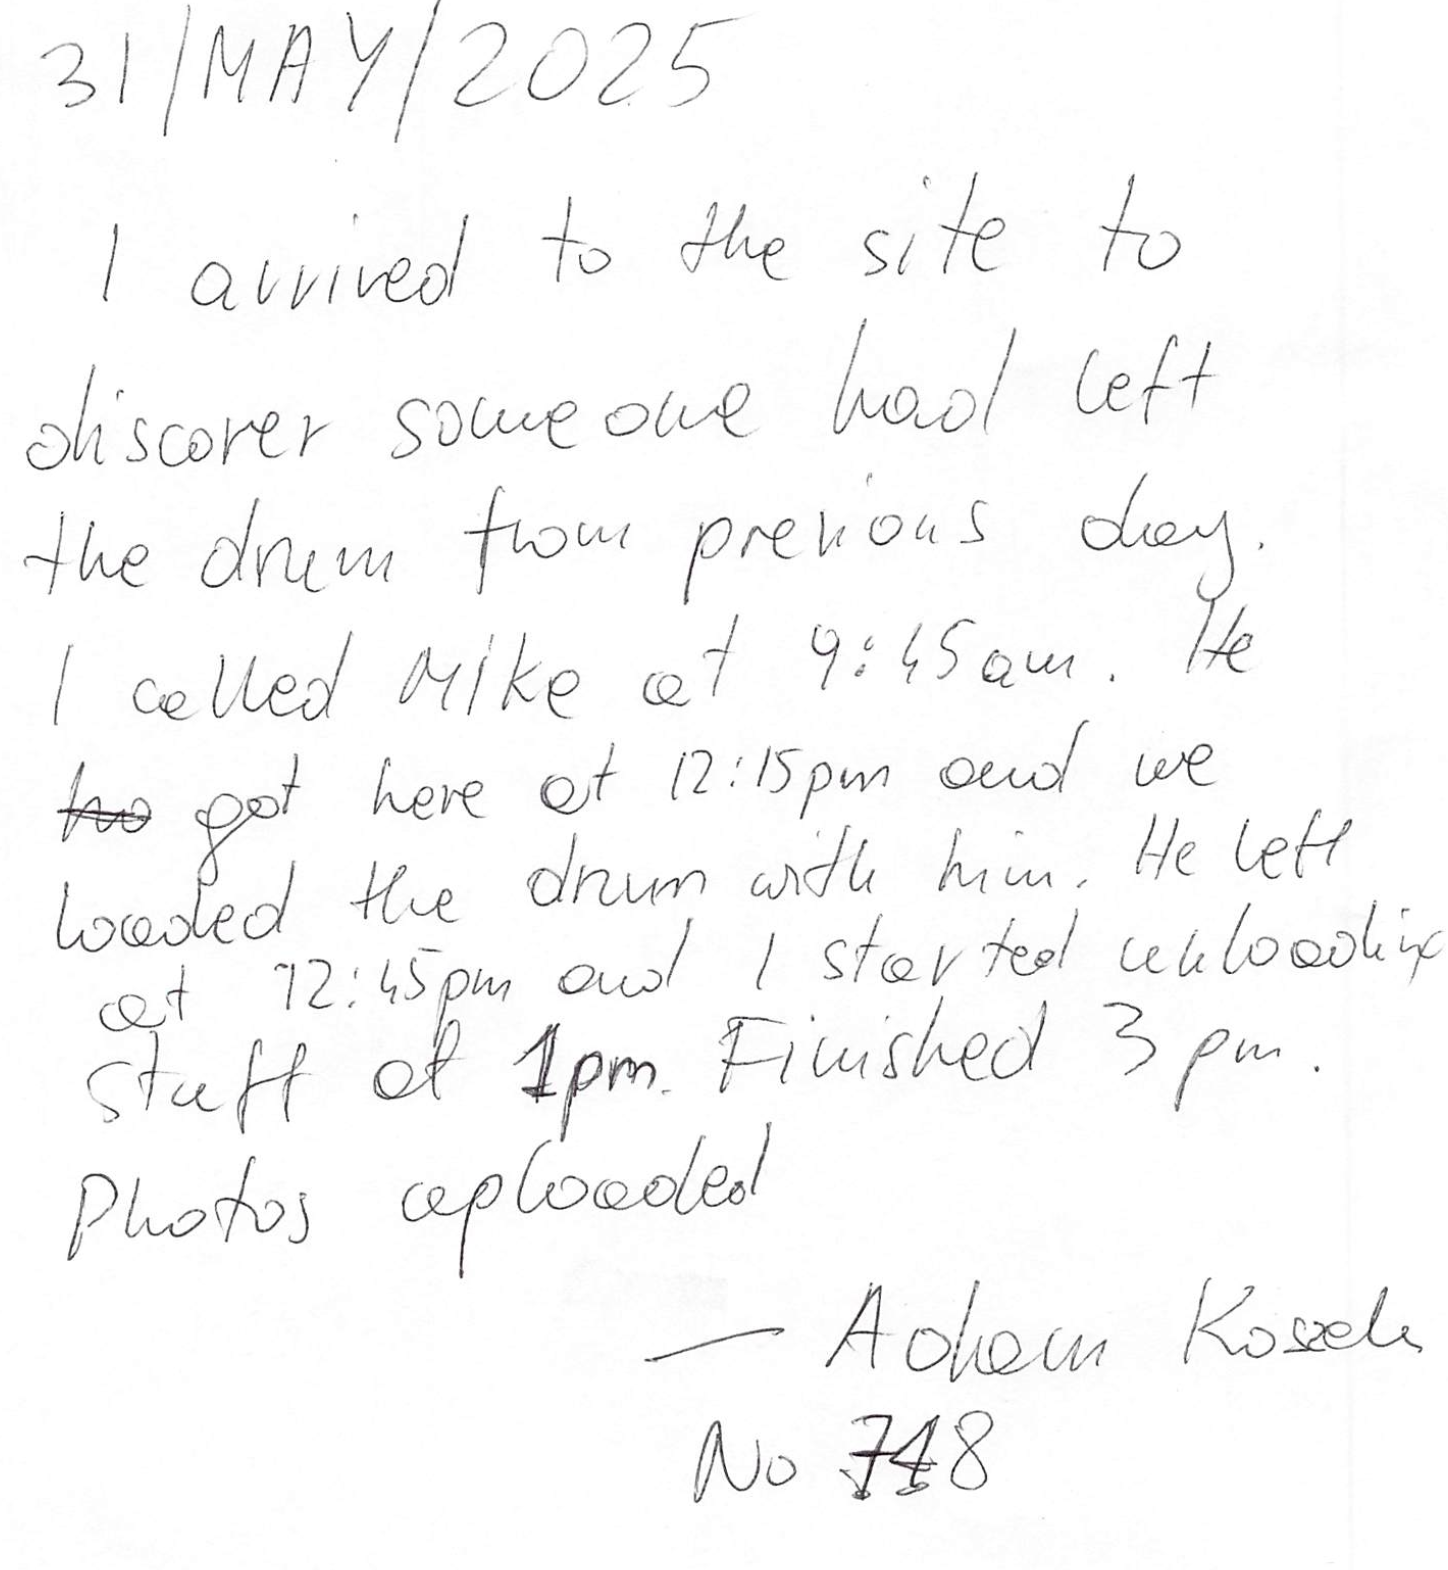 31/MAY/2025
I arrived to the site to
discover someone had left
the drum from previous day.
I called Mike at 9:45am. He
got here at 12:15pm and we
loaded the drum with him. He left
at 12:45pm and I started unloading
stuff at 1pm. Finished 3pm.
Photos uploaded
— Adam Koszela
No 748